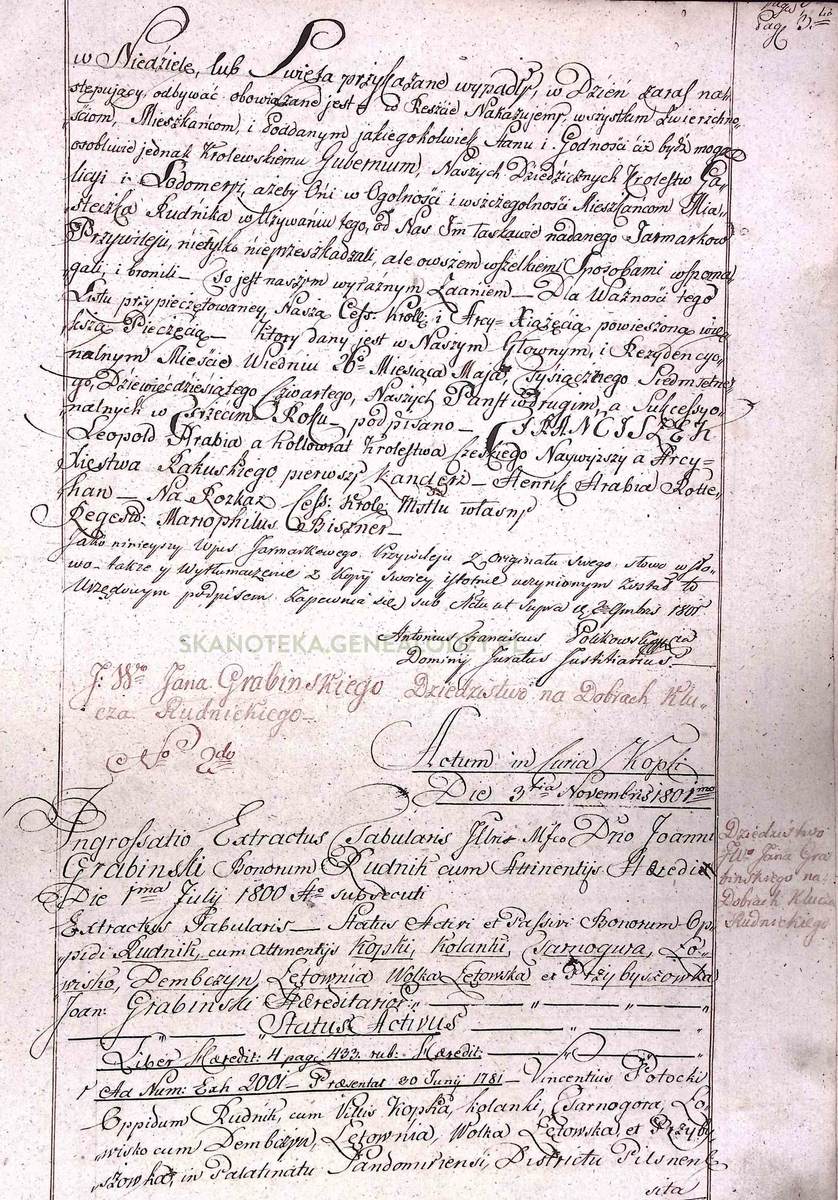 Pag 3.tio
w Niedziele, lub Swięta przykazane wypadły, w Dzień zaraz na-
stępujący, odbywać obowiązane jest w Reszcie Nakazujemy, wszystkim Zwierzchno-
sciom, Mieszkańcom, i Poddanym jakiegokolwiek Stanu i Godności iż bydź mogą
osobliwie jednak Krolewskiemu Gubernium, Naszych Dziedzicznych Krolestw Ga-
licyi i Lodomeryi, ażeby Oni w Ogolności i wszczegolności Mieszkancom Mia-
steczka Rudnika w Używaniu tego, od Nas Im łaskawie nadanego Jarmarkow
Przywileju, nietylko nieprzeszkadzali, ale owszem wszelkiemi Sposobami wspoma-
gali, i bronili – To jest naszym wyraźnym Zdaniem – Dla Ważności tego
Listu przypieczętowaney, Naszą Cess: Krole: i Arcy-Xiążęcią powieszoną wię-
kszą Pieczęcią – Ktory dany jest w Naszym Głownym, i Rezydencyo-
nalnym Mieście Wiedniu 26o Miesiąca Maja, Tysiącznego Siedmsetne-
go, Dziewięćdziesiątego Czwartego, Naszych Państw Drugim, a Sukcessyo-
nalnych w Trzecim Roku – podpisano – FRANCISZEK
Leopold Hrabia a Kollowrat Krolestwa Czeskiego Naywyższy a Arcy-
Xięstwa Rakuskiego pierwszy Kanclerz – Henrik Hrabia Rotte-
han – Na Rozkaz Cess: Krole: Mstlu własny
Regestr: Manophilus Biszner –
Jako ninieyszy Wpis Jarmarkowego Przywileju z Originału swego słowo w sło-
wo – także y Wytłumaczenie z Kopij swoiey istotnie uczynionym został to
Urzędowym podpisem zapewnia się, sub Actu ut Supra 1801
SKANOTEKA.GENEALODZY.PL
Antonius Franciscus
Dominij Juratus Justitiarius
J: Wgo Jana Grabinskiego Dziedzistwo na Dobrach Klu-
cza Rudnickiego –
No 2do
Actum in Curia Kopki
Die 3tia Novembris 1801mo
Ingrossatio Extractus Tabularis Illris Mfco Dno Joanni
Grabinski Bonorum Rudnik cum Attinentijs Haeredit
Die 1ma July 1800 Ao subsecuti
Dziedzistwo
JWo Jana Gra
binskiego na
Dobrach Klucza
Rudnickiego
Extractus Tabularis – Status Activi et Passivi Bonorum Op-
pidi Rudnik, cum Attinentijs Kopki, Kolanki, Csarnogura, Ło-
wisko, Dembczyn, Łętownia Wolka Łętowska et Przybyszowka
Joan: Grabinski Haereditarior:
Status Activus
Liber Haeredit: 4 pag: 433. rub: Haeredit:
1 Ad Num: Exh 2001 – Praesentat 30 Junij 1781 – Vincentius Potocki
Oppidum Rudnik, cum Villis Kopka, Kolanki, Csarnogora, Ło-
wisko cum Dembczyn, Łętownia, Wolka Łętowska, et Przyby-
szowka, in Palatinatu Sandomiriensi, Districtu Pilsnen:
sita